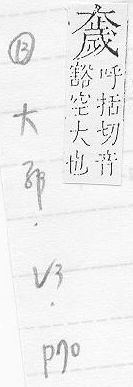 奯
呼括切音
豁空大也
⑬ 大部.V3.p70